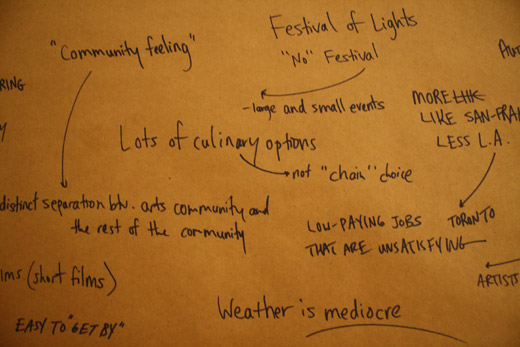 Festival of Lights
"No" Festival
"Community feeling"
-large and small events
MORE LIKE
LIKE SAN-FRA
LESS L.A.
Lots of culinary options
not "chain" choice
distinct separation btw. arts community and
the rest of the community
LOW-PAYING JOBS
THAT ARE UNSATISFYING
TORONTO
(short films)
ARTISTS
Weather is mediocre
EASY TO "GET BY"